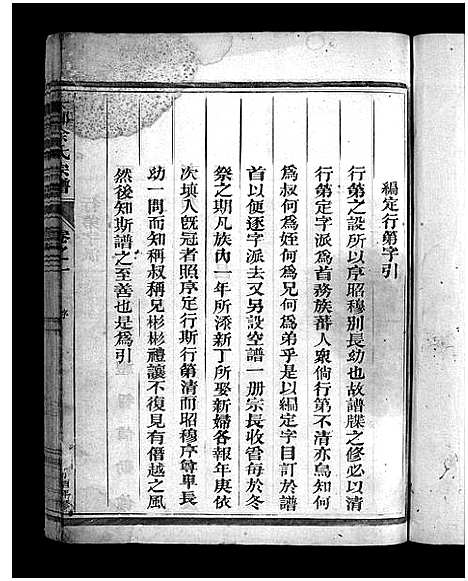 編定行第字引
行第之設所以序昭穆別長幼也故譜牒之修必以清
行第定字派爲首務族蕃人衆倘行第不清亦烏知何
爲叔何爲姪何爲兄何爲弟乎是以編定字目訂於譜
首以便逐字派去又另設空譜一册宗長收管每於冬
祭之期凡族內一年所添新丁所娶新婦各報年庚依
次塡入旣冠者照序定行斯行第清而昭穆序尊卑長
幼一問而知稱叔稱兄彬彬禮讓不復見有僭越之風
然後知斯譜之至善也是爲引
氏宗譜
卷